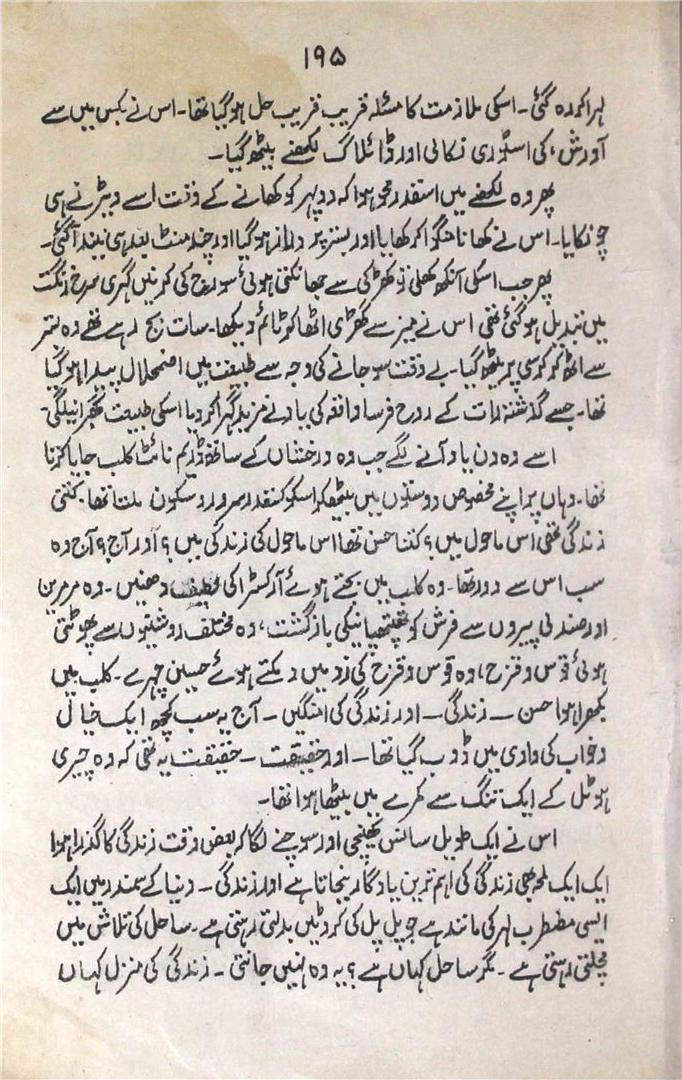 ۱۹۵
لہرا کر رہ گئی۔ اسکی ملازمت کا مسئلہ قریب قریب حل ہو گیا تھا۔ اس نے بکس میں سے
آدرش، کی اسٹوری نکالی اور ڈائلاگ لکھنے بیٹھ گیا۔
پھر وہ لکھنے میں اسقدر محو ہوا کہ دوپہر کو کھانے کے وقت اسے ویٹر نے ہی
چونکایا۔ اس نے کھانا منگوا کر کھایا اور بستر پر دراز ہو گیا اور چند منٹ بعد ہی نیند آ گئی۔
پھر جب اسکی آنکھ کھلی تو کھڑکی سے جھانکتی ہوئی سورج کی کرنیں گہری سرخ رنگت
میں تبدیل ہو گئی تھی اس نے میز سے گھڑی اٹھا کر ٹائم دیکھا۔ سات بج رہے تھے وہ بستر
سے اٹھ کر کرسی پر بیٹھ گیا۔ بے وقت سو جانے کی وجہ سے طبیعت میں اضمحلال پیدا ہو گیا
تھا۔ جسے گذشتہ رات کے روح فرسا واقعہ کی یاد نے مزید گہرا کر دیا اسکی طبیعت گھبرانے لگی۔
اسے وہ دن یاد آنے لگے جب وہ درخشاں کے ساتھ ڈریم نائٹ کلب جایا کرتا
تھا۔ وہاں پر اپنے مخصوص دوستوں میں بیٹھکر اسکو کسقدر سرور و سکون ملتا تھا۔ کتنی
زندگی تھی اس ماحول میں؟ کتنا حسن تھا اس ماحول کی زندگی میں؟ اور آج؟ آج وہ
سب اس سے دور تھا۔ وہ کلب میں بجتے ہوئے آرکسٹرا کی لطیف دھنیں۔ وہ مرمرین
اور صندلی پیروں سے فرش کو تھپتھپانیکی بازگشت، وہ مختلف روشنیوں سے پھوٹتی
ہوئی قوس و قزح، وہ قوس و قزح کی زد میں دمکتے ہوئے حسین چہرے۔ کلب میں
بکھرا ہوا حسن ۔ زندگی ۔ اور زندگی کی امنگیں ۔ آج یہ سب کچھ ایک خیال
و خواب کی وادی میں ڈوب گیا تھا۔ اور حقیقت ۔ حقیقت یہ تھی کہ وہ چیری
ہوٹل کے ایک تنگ سے کمرے میں بیٹھا ہوا تھا۔
اس نے ایک طویل سانس کھینچی اور سوچنے لگا کہ بعض وقت زندگی کا گذرا ہوا
ایک ایک لمحہ بھی زندگی کی اہم ترین یادگار بنجاتا ہے اور زندگی ۔ دنیا کے سمندر میں ایک
ایسی مضطرب لہر کی مانند ہے جو پل پل کی کروٹیں بدلتی رہتی ہے۔ ساحل کی تلاش میں
مچلتی رہستی ہے۔ مگر ساحل کہاں ہے؟ یہ وہ نہیں جانتی ۔ زندگی کی منزل کہاں